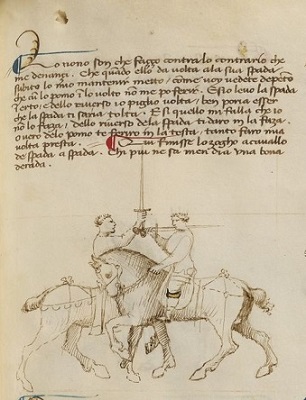 Io sono son che fazzo contra lo contrario che
me denançi. Che quando ello da volta ala sua spada
subito lo mio mantenir metto / come voy vedete depento
che cum lo pomo i lo volto no me po ferir. E s'io levo la spada
erto / e dello riverso io piglio volta / ben poria esser
che la spada ti saria tolta. E si quello mi falla che io
no lo faza / dello riverso dela spada ti daro in la faza.
O vero delo pomo te feriro in la testa, tanto faro mia
volta presta. Qui finisse lo zogho a cavallo
de spada a spada. Chi piu ne sa men dia una bona
derada.